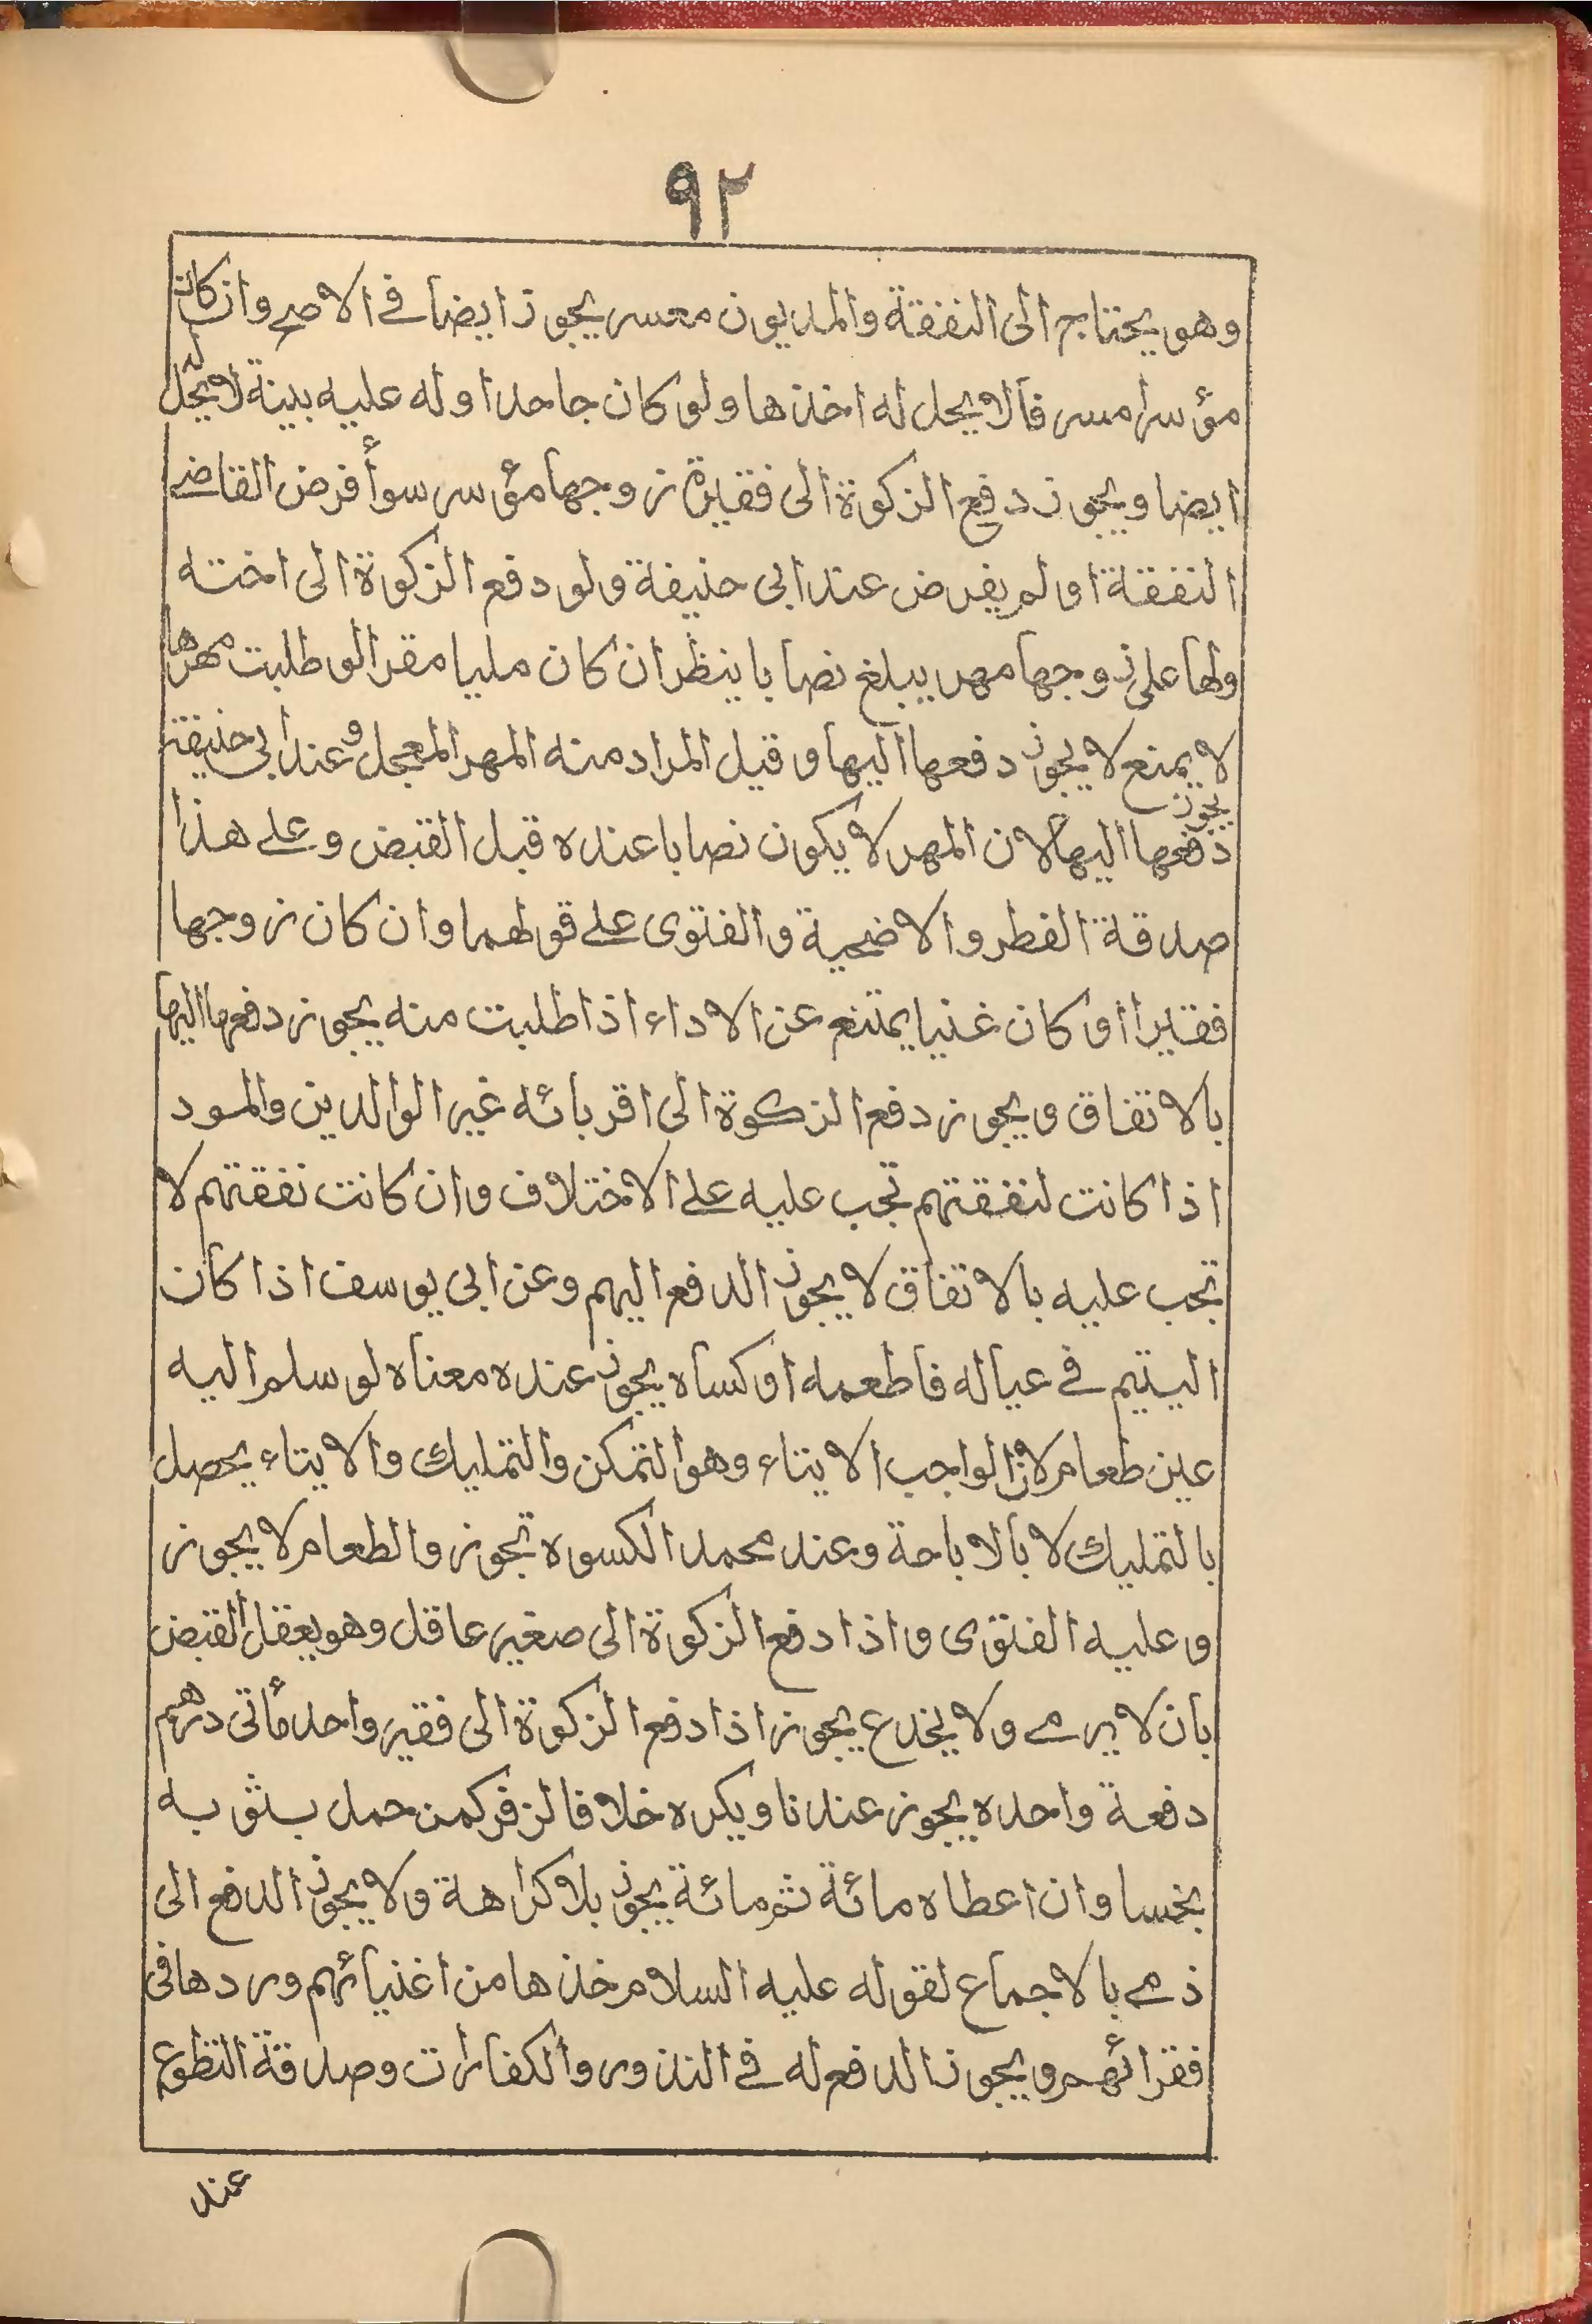 ٩٢
وهو يحتاج الى النفقة والمديون معسر يجوز ايضا في الاصح وان كان
مؤسرا مسر فالا يحل له اخذها ولو كان جاحدا وله عليه بينة لا يحل له
ايضا ويجوز دفع الزكوة الى فقيرة زوجها مؤسر سوأ فرض القاضي
النفقة او لم يفرض عند ابي حنيفة ولو دفع الزكوة الى اخته
ولها على زوجها مهر يبلغ نصابا ينظر ان كان مليا مقرا لو طلبت مهرها
لا يمنع لا يجوز دفعها اليها وقيل المراد منه المهر المعجل وعند ابي حنيفة
يجوز
دفعها اليها لان المهر لا يكون نصابا عنده قبل القبض وعلى هذا
صدقة الفطر والاضحية والفتوى على قولهما وان كان زوجها
فقيرا او كان غنيا يمتنع عن الاداء اذا طلبت منه يجوز دفعها اليها
بالاتفاق ويجوز دفع الزكوة الى اقربائه غير الوالدين والمود
اذا كانت لنفقتهم تجب عليه على الاختلاف وان كانت نفقتهم لا
تجب عليه بالاتفاق لا يجوز الدفع اليهم وعن ابي يوسف اذا كان
اليتيم في عياله فاطعمه او كساه يجوز عنده معناه لو سلم اليه
عين طعام لان الواجب الايتاء وهو التمكن والتمليك والايتاء يحصل
بالتمليك لا بالاباحة وعند محمد الكسوه تجوز والطعام لا يجوز
وعليه الفتوى واذا دفع الزكوة الى صغير عاقل وهو يعقل القبض
بان لا يرمي ولا يخدع يجوز اذا دفع الزكوة الى فقير واحد مأتى درهم
دفعة واحده يجوز عندنا ويكره خلافا لزفر كمن حمل بثوبه
بخسا وان اعطاه مائة ثم مائة يجوز بلا كراهة ولا يجوز الدفع الى
ذمي بالاجماع لقوله عليه السلام خذها من اغنيائهم وردها في
فقرائهم ويجوز الدفع له في النذور والكفارات وصدقة التطوع
عند